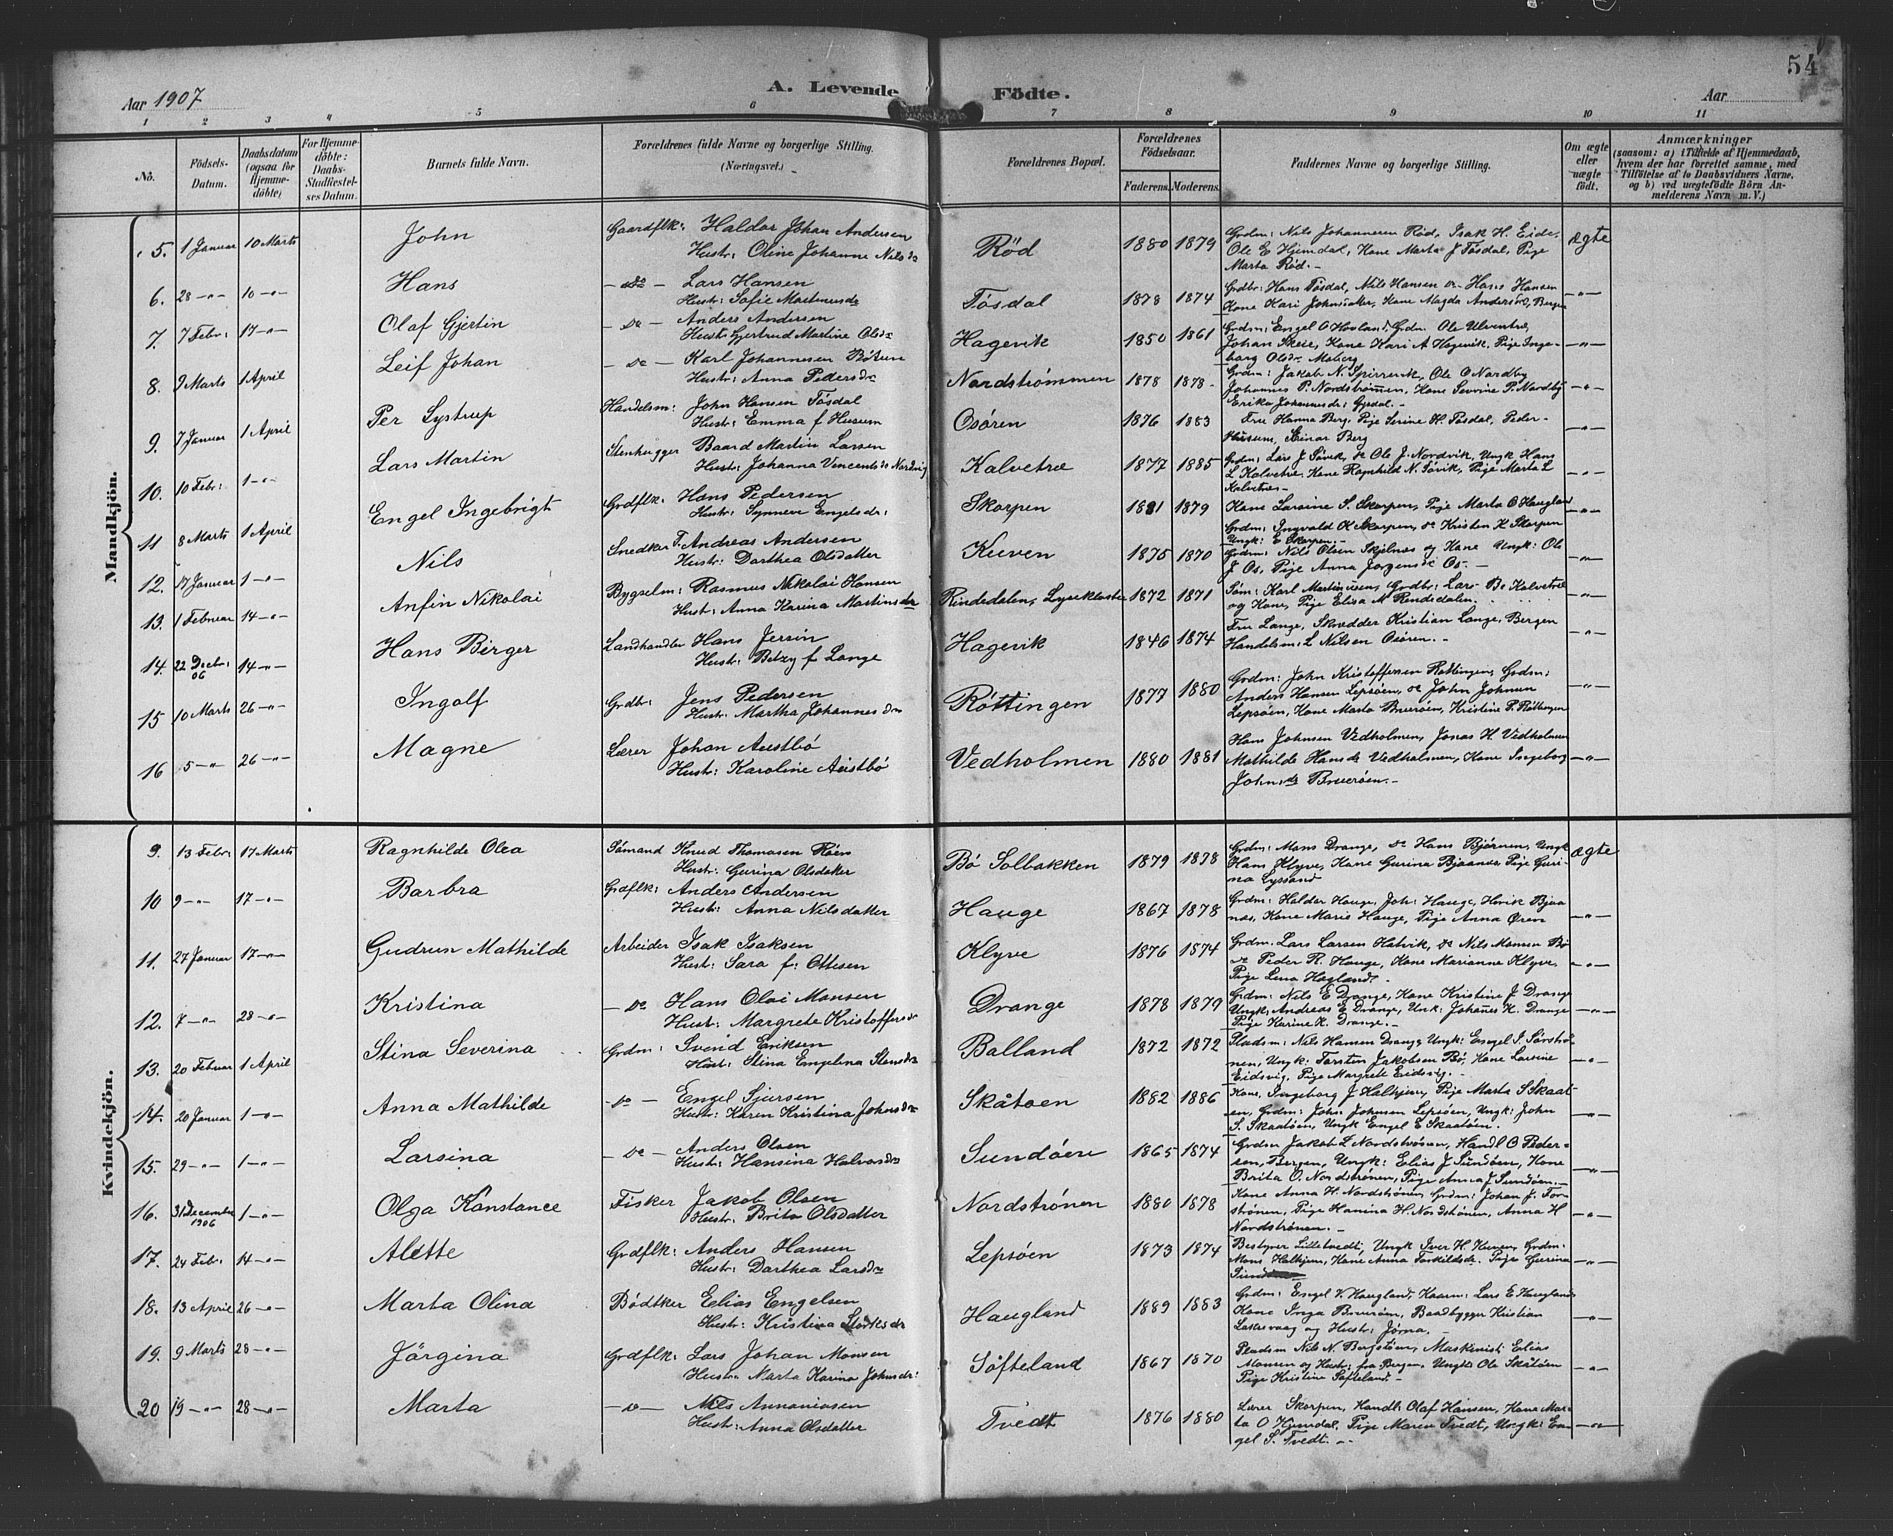 54
Aar 1907
A. Levende Födte.
Aar
1 2 3 4 5 6 7 8 9 10 11
No.
Födsels-Datum.
Daabsdatum (ogsaa for Hjemme-döbte)
For Hjemme-döbte: Daabs-Stadfæstel-ses Datum.
Barnets fulde Navn.
Forældrenes fulde Navne og borgerlige Stilling. (Næringsvei.)
Forældrenes Bopæl.
Forældrenes Födselsaar.
Faderens. Moderens.
Faddernes Navne og borgerlige Stilling.
Om ægte eller uægte födt.
Anmærkninger
(saasom: a) i Tilfælde af Hjemmedaab, hvem der har forrettet samme, med Tilföielse af to Daabsvidners Navne, og b) ved uægtefödte Börn An-melderens Navn m. V.)
Mandkjön.
5. 1 Januar 10 Marts John Gaardflk: Haldor Johan Andersen Rød 1880 1879 Grdm: Nils Johannesen Rød, Isak H. Eide, ægte
Hustr: Oline Johanne Nilsdr Ole E Hjemdal, Kone Marta J Tøsdal, Pige
Marta Rød. -
6. 28 -"- 10 -"- Hans - do - Lars Hansen Tøsdal 1878 1874 Grdbr: Hans Tøsdal, Nils Hansen do Hans Hansen -"-
Hustr: Sofie Martinusdr Kone Magda Andersen, Bergen
7. 7 Febr: 17 -"- Olaf Gjertin - do - Anders Andersen Hagevik 1850 1861 Grdm: Engel O Hovland, Grdm: Ole Ulventræ, -"-
Hustr: Gjertrud Martine Olsdr Johan Skeie, Kone Kari A Hagevik, Pige Inge-
borg Olsdr Moberg
8. 9 Marts 1 April Leif Johan - do - Karl Johannesen Bøtun Nordstrømmen 1878 1878 Grdm: Jakob N. Ole O Nordby -"-
Hustr: Anna Pedersdr Johannes P. Nordstrømmen, Kone Severine P. Nordby
Erika Johannesdr:
9. 7 Januar 1 April Per Systrup Handelsm: John Hansen Tøsdal Osøren 1876 1883 Fru Hanna Berg, Pige Serine H. Tøsdal, Peder -"-
Hustr: Emma f Husum Husum, Einar Berg
10. 10 Febr: 1 -"- Lars Martin Stenhugger Baard Martin Larsen Kalvetræ 1877 1885 Grdm: Lars J Søvik, do Ole J Nordvik, Ungk Hans -"-
Hustr: Johanna Vincentsdr Nordvig L Kalvetræ, Kone Ragnhild N. Søvik, Pige Marta L
Kalvetræ -
11 8 Marts 1 April Engel Ingebrigt Grdflk: Hans Pedersen Skorpen 1881 1879 Kone Larsine S. Skorpen, Pige Marta O Haugland -"-
Hustr: Synneve Engelsdr: Grdm: Ingvald H Skorpen, do Kristen H Skorpen
Ungk: E Skorpen. -
12. 17 Januar 1 -"- Nils Snedker T. Andreas Andersen Kuven 1875 1870 Grdm: Nils Olsen Skjelnes og Kone Ungk: Ole -"-
Hustr: Dorthea Olsdatter J Os, Pige Anna Jørgensdr Os -
13. 1 Februar 14 -"- Anfin Nikolai Bygselm: Rasmus Nikolai Hansen Rindedalen, Lyseklostre 1872 1871 Søm: Karl Martinusen, Grdbr: Lars B. Kalvetræ -"-
Hustr: Anna Karina Martinsdr og Kone, Pige Elisa M Rendedalen.
14. 22 Decbr: 06 14 -"- Hans Birger Landhandler Hans Jersin Hagevik 1846 1874 Fru Lange, Skrædder Kristian Lange, Bergen -"-
Hustr: Betzy f Lange Handelsm: L Nilsen Osøren. -
15 10 Marts 26 -"- Ingolf Grdbr: Jens Pedersen Røttingen 1877 1880 Grdm: John Kristoffersen Røttingen, Grdm: -"-
Hustr: Martha Johannesdr Anders Hansen Lepsøen, do John Johnsen
Lepsøen, Kone Marta Bruerøen, Kristine P. Røttingen
16 5 -"- 26 -"- Magne Lærer Johan Austbø Vedholmen 1880 1881 Hans Johnsen Vedholmen, Jonas H Vedholmen -"-
Hustr: Karoline Austbø Mathilde Hansdr Vedholmen, Kone Ingeborg
Johnsdr Bruerøen. -
Kvindekjön.
9. 13 Febr: 17 Marts Ragnhilde Olea Sømand Knud Thomasen Røen Bø Solbakken 1879 1878 Grdm: Mons Drange, do Hans Bjørnen, Ungk ægte
Hustr: Gurina Olsdatter Hans Klyve, Kone Gurina Bjaanes Pige Guri-
na Lyssand
10 9 -"- 17 -"- Barbra Grdflk: Anders Andersen Hauge 1867 1878 Grdm: Haldor Hauge, Joh: Hauge, Henrik Bjaa- -"-
Hustr: Anna Nilsdatter nes, Kone Marie Hauge, Pige Anna Øren
11. 27 Januar 17 -"- Gudrun Mathilde Arbeider Isak Isaksen Klyve 1876 1874 Grdm: Lars Larsen Hatvik, do Nils Monsen Bø -"-
Hustr: Sara f: Ottesen do Peder R. Hauge, Kone Marianne Klyve
Pige Lena Hagland. -
12. 7 -"- 28 -"- Kristina - do Hans Olai Monsen Drange 1878 1879 Grdm: Nils E Drange, Kone Kristine J Drange -"-
Hustr: Margrete Kristoffersdr Ungk: Andreas E Drange, Unk: Johannes K. Drange
Pige Karine K. Drange. -
13. 20 Februar 1 April Stina Severina Grdm: Svend Eriksen Balland 1872 1872 Pladsm: Nils Hansen Drange Ungk: Engel S. Sørstrø- -"-
Hustr: Stina Engelina nen, Ungk: Torsten Jakobsen Bø, Kone Larsine
Eidsvig, Pige Margrete Eidsvig. -
14. 20 Januar 1 -"- Anna Mathilde - do - Engel Sjursen Skåtøen 1882 1886 Kone, Ingeborg J Halhjem, Pige Marta S Skaat- -"-
Hustr: Karen Kristina Johnsdr øen, Grdm: John Johnsen Lepsøen, Ungk: John
S. Skaatøen, Ungk Engel S Skaatøen.
15. 29 -"- 1 -"- Larsina - do - Anders Olsen Sundøen 1865 1874 Grdm Jakob L Nordstrønen, Handl O Peder- -"-
Hustr: Hansina Halvorsdr sen, Bergen, Ungk: Elias J Sundøen, Kone
Brita O. Nordstrønen, Pige Anna J Sundøen. -
16. 31 December 1906 1 -"- Olga Konstance Fisker Jakob Olsen Nordstrønen 1880 1878 Kone Anna H. Nordstrønen Grdm: Johan J. Tor- -"-
Hustr: Brita Olsdatter strønen, Pige Hanina H. Nordstrønen, Anna H
Nordstrønen. -
17. 24 Febr: 14 -"- Alette Grdflk: Anders Hansen Lepsøen 1873 1874 Bestyrer Lilletvedt, Ungk Iver H. Kuven, Grdm: -"-
Hustr: Dorthea Larsdr Mons Halhjem, Kone Anna Torkildsdr. Pige Gurina
18. 13 April 26 -"- Marta Olina Bødtker Elias Engelsen Haugland 1889 1883 Grdm: Engel V. Haugland, Lars E Haugland -"-
Hustr: Kristina Kone Inga Bruerøen, Baadbygger Kristian
og Hustr: Jørna. -
19. 9 Marts 28 -"- Jörgina Grdflk: Lars Johan Monsen Søfteland 1867 1870 Pladsm Nils N. Maskinist Elias -"-
Hustr: Marta Karina Johnsdr: Monsen og Hustr: fra Bergen, Ungk: Ole Skåtøen
Pige Kristine Søfteland. -
20 19 -"- 28 -"- Marta - do - Nils Annaniasen Tvedt 1876 1880 Lærer Skorpen, Handl: Olaf Hansen, Kone Mar- -"-
Hustr: Anna Olsdatter ta O Hjemdal, Pige Maren Tvedt, Ungk: En-
gel S. Tvedt. -